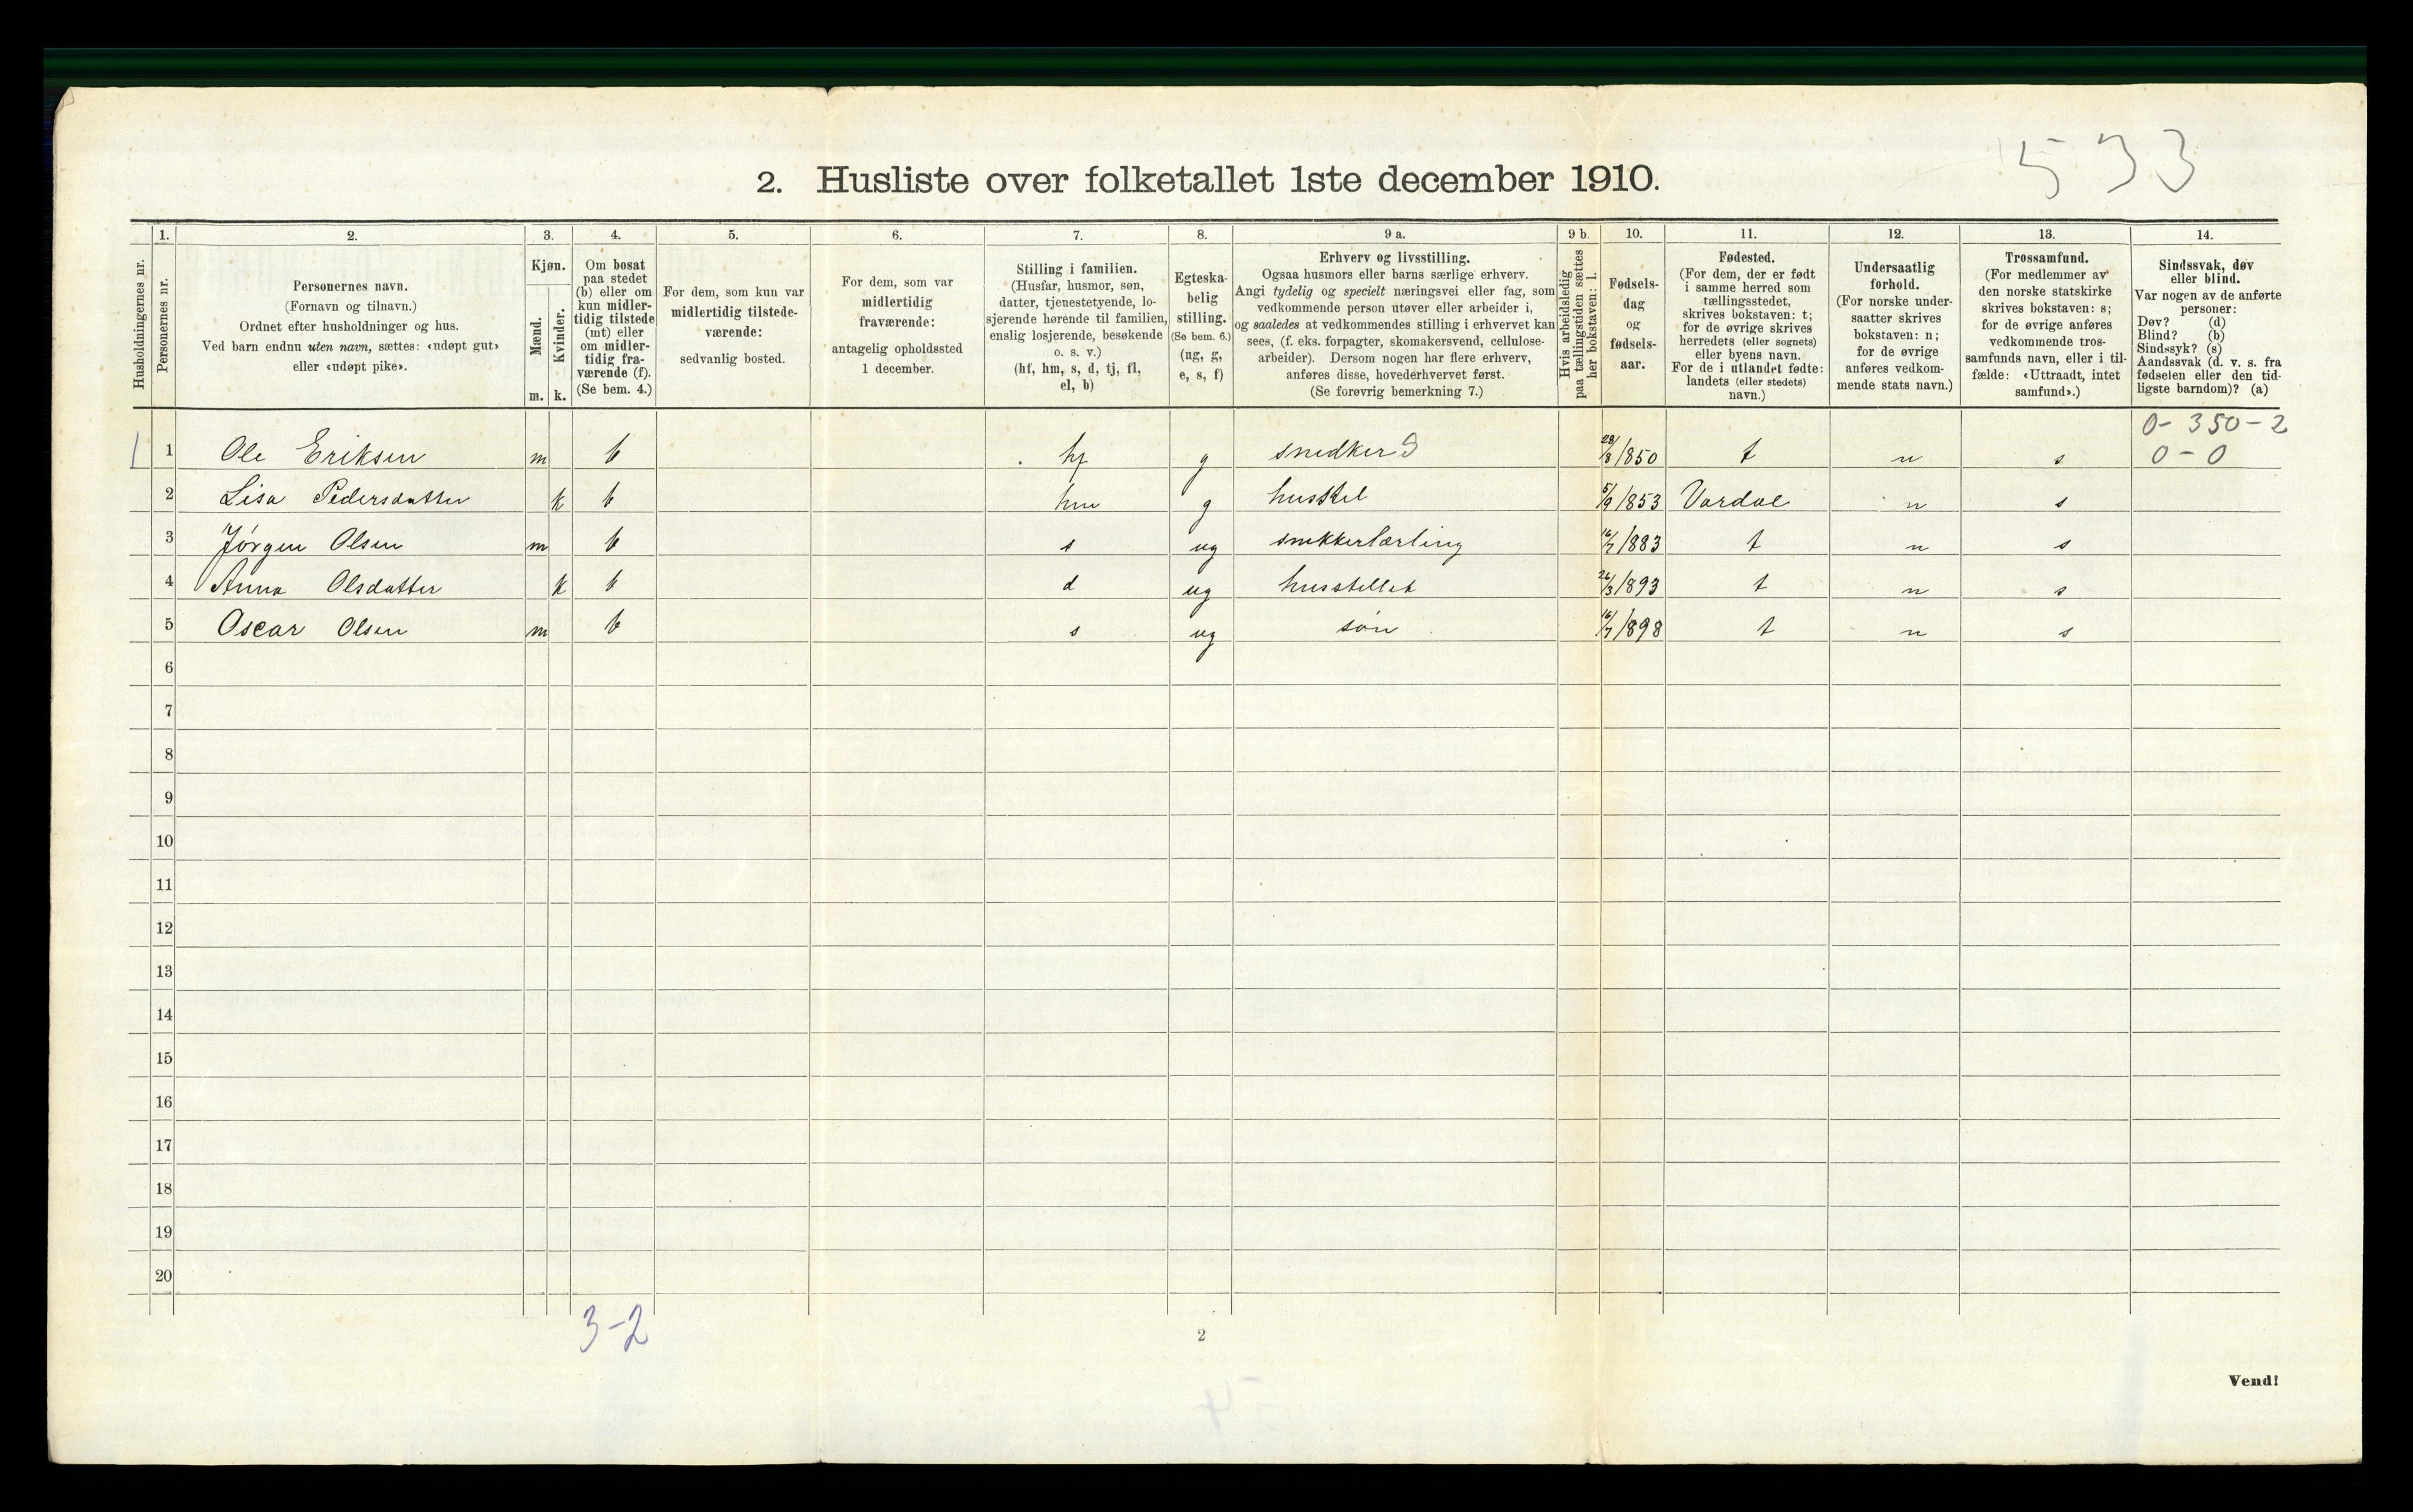 533
2. Husliste over folketallet 1ste december 1910.
Husholdningernes nr.
1.
Personernes nr.
2.
Personernes navn.
(Fornavn og tilnavn.)
Ordnet efter husholdninger og hus.
Ved barn endnu uten navn, sættes: «udøpt gut»
eller «udøpt pike».
3.
Kjøn.
Mænd.
Kvinder.
m. k.
4.
Om bosat
paa stedet
(b) eller om
kun midler-
tidig tilstede
(mt) eller
om midler-
tidig fra-
værende (f).
(Se bem. 4.)
5.
For dem, som kun var
midlertidig tilstede-
værende:
sedvanlig bosted.
6.
For dem, som var
midlertidig
fraværende:
antagelig opholdssted
1 december.
7.
Stilling i familien.
(Husfar, husmor, søn,
datter, tjenestetyende, lo-
sjerende hørende til familien,
enslig losjerende, besøkende
o. s. v.)
(hf, hm, s, d, tj, fl,
el, b)
8.
Egteska-
belig
stilling.
(Se bem. 6.)
(ug, g,
e, s, f)
9 a.
Erhverv og livsstilling.
Ogsaa husmors eller barns særlige erhverv.
Angi tydelig og specielt næringsvei eller fag, som
vedkommende person utøver eller arbeider i,
og saaledes at vedkommendes stilling i erhvervet kan
sees, (f. eks. forpagter, skomakersvend, cellulose-
arbeider). Dersom nogen har flere erhverv,
anføres disse, hovederhvervet først.
(Se forøvrig bemerkning 7.)
9 b.
Hvis arbeidsledig
paa tællingstiden sættes
her bokstaven: l.
10.
Fødsels-
dag
og
fødsels-
aar.
11.
Fødested.
(For dem, der er født
i samme herred som
tællingsstedet,
skrives bokstaven: t;
for de øvrige skrives
herredets (eller sognets)
eller byens navn.
For de i utlandet fødte:
landets (eller stedets)
navn.)
12.
Undersaatlig
forhold.
(For norske under-
saatter skrives
bokstaven: n;
for de øvrige
anføres vedkom-
mende stats navn.)
13.
Trossamfund.
(For medlemmer av
den norske statskirke
skrives bokstaven: s;
for de øvrige anføres
vedkommende tros-
samfunds navn, eller i til-
fælde: «Uttraadt, intet
samfund».)
14.
Sindssvak, døv
eller blind.
Var nogen av de anførte
personer:
Døv? (d)
Blind? (b)
Sindssyk? (s)
Aandssvak (d. v. s. fra
fødselen eller den tid-
ligste barndom)? (a)
0-350-2
1 1 Ole Eriksen m b hf g snedker S 28/8 1850 t n s 0-0
2 Lisa Pedersdatter k b hm g husstel 5/9 1853 Vardal n s
3 Jørgen Olsen m b s ug snekkerlærling 16/7 1883 t n s
4 Anna Olsdatter k b d ug husstellet 26/3 1893 t n s
5 Oscar Olsen m b s ug søn 16/7 1898 t n s
6
7
8
9
10
11
12
13
14
15
16
17
18
19
20
3-2
2
Vend!